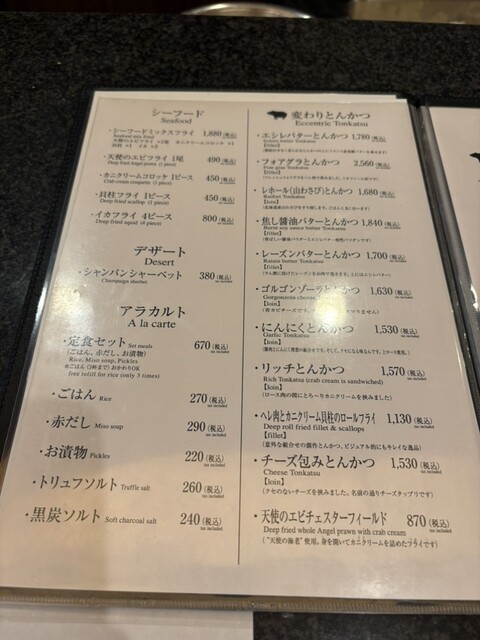 シーフード
Seafood
・シーフードミックスフライ 1,880(税込)
Seafood mix fried
・天使のエビフライ 1尾 490(税込)
Deep fried Angel prawn (1 piece)
・カニクリームコロッケ 1ピース 450(税込)
Crab cream croquette (1 piece)
・貝柱フライ 1ピース 450(税込)
Deep fried scallop (1 piece)
・イカフライ 4ピース 800(税込)
Deep fried squid (4 piece)
デザート
Desert
・シャンパンシャーベット 380(税込)
Champaign sherbet tax included
アラカルト
A la carte
・定食セット Set meals 670(税込)
tax included
(ごはん、赤だし、お漬物)
Rice, Miso soup, Pickles
※ごはん(3杯まで)おかわりOK
free refill for rice (only 3 times)
・ごはん Rice 270(税込)
tax included
・赤だし Miso soup 290(税込)
tax included
・お漬物 Pickles 220(税込)
tax included
・トリュフソルト Truffle salt 260(税込)
tax included
・黒炭ソルト Soft charcoal salt 240(税込)
tax included
変わりとんかつ
Eccentric Tonkatsu
・エシレバターとんかつ 1,780(税込)
Echire butter Tonkatsu
【fillet】
・フォアグラとんかつ 2,560(税込)
Foie gras Tonkatsu
【fillet】
・レホール(山わさび)とんかつ 1,680(税込)
Raifort Tonkatsu
【loin】
・焦し醤油バターとんかつ 1,840(税込)
Burnt soy sauce butter Tonkatsu
【fillet】
・レーズンバターとんかつ 1,700(税込)
Raisin butter Tonkatsu
【fillet】
・ゴルゴンゾーラとんかつ 1,630(税込)
Gorgonzora cheese
【loin】
・にんにくとんかつ 1,530(税込)
Garlic Tonkatsu tax included
【loin】
・リッチとんかつ 1,570(税込)
Rich Tonkatsu (crab cream is sandwiched) tax included
【loin】
(ロース肉の間にとろ〜りカニクリームを挟みました)
・ヘレ肉とカニクリーム貝柱のロールフライ 1,130(税込)
Deep roll fried fillet & scallops tax included
【fillet】
(意外な組合せの創作とんかつ、ビジュアル的にもキレイな逸品)
・チーズ包みとんかつ 1,530(税込)
Cheese Tonkatsu tax included
【loin】
(クセのないチーズを挟みました。名前の通りチーズタップリです)
・天使のエビチェスターフィールド 870(税込)
Deep fried whole Angel prawn with crab cream tax included
(“天使の海老”使用。身を開いてカニクリームを詰めたフライです)